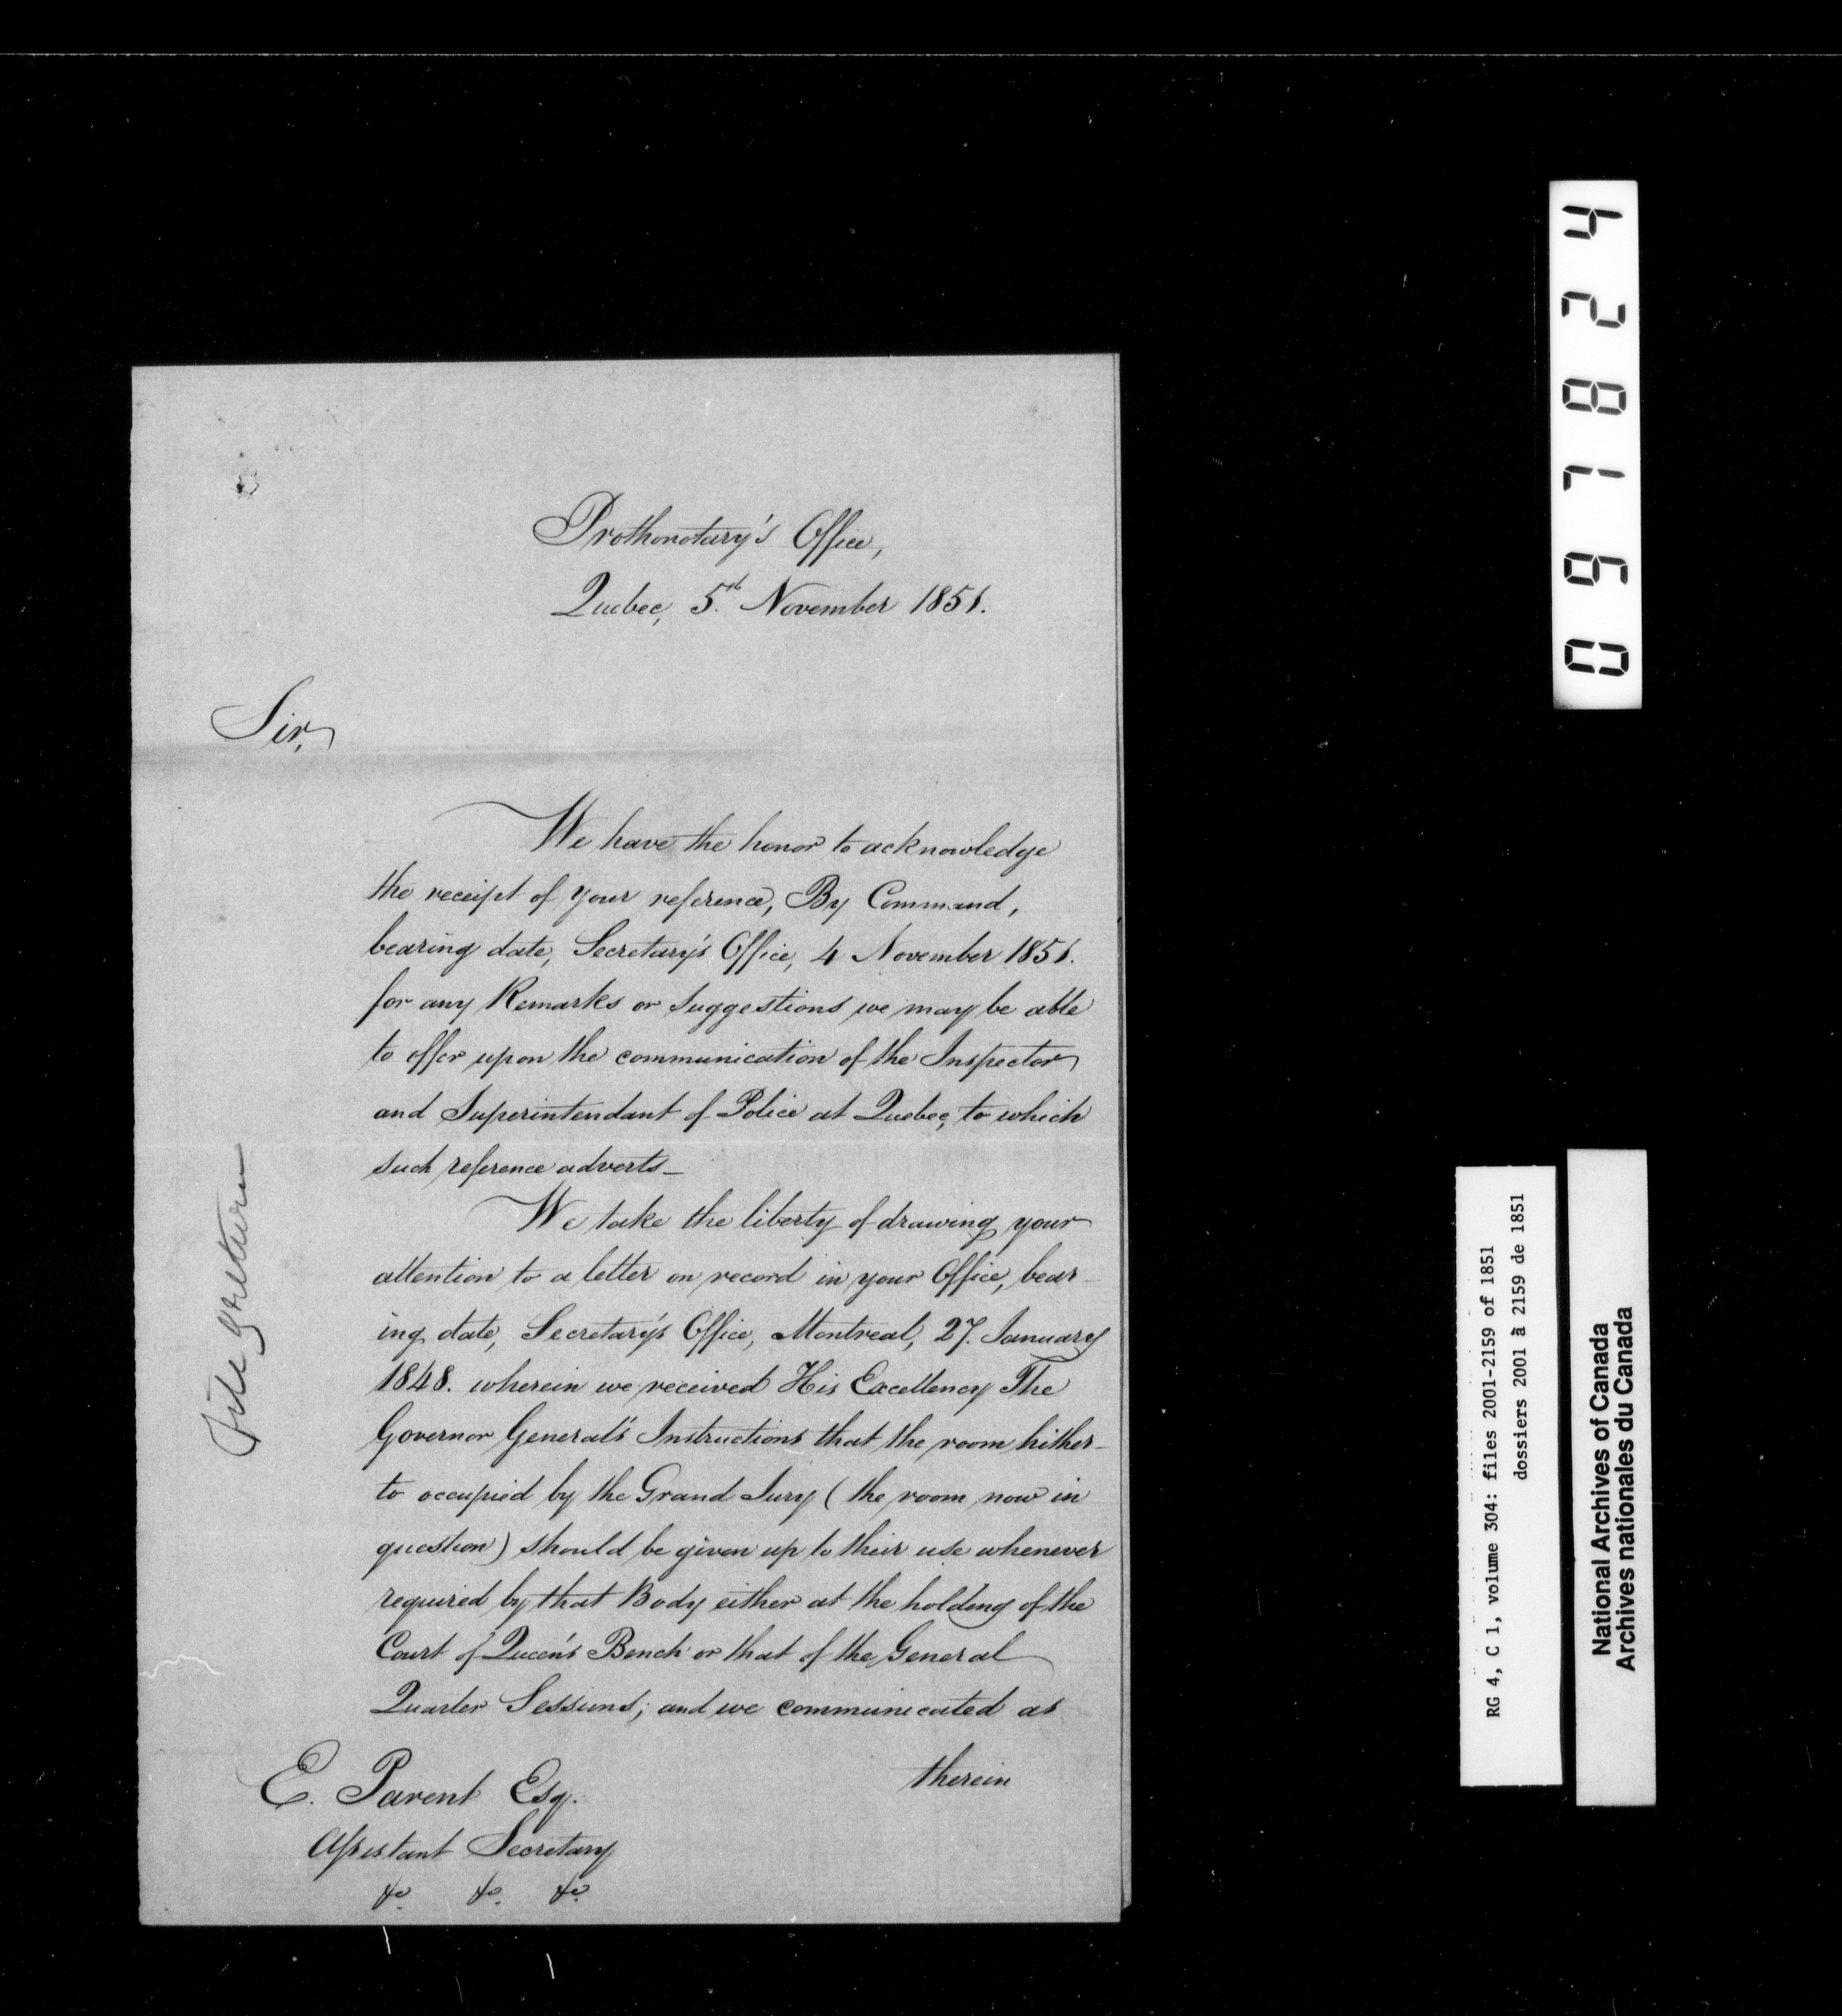 Prothonotary's Office,
Quebec, 5th November 1851.
Sir,
We have the honor to acknowledge
the receipt of your reference, By Command,
bearing date, Secretary's Office, 4 November 1851.
for any Remarks or Suggestions we may be able
to offer upon the communication of the Inspector
and Superintendant of Police at Quebec, to which
such reference adverts_
We take the liberty of drawing your
attention to a letter on record in your Office, bear-
ing date, Secretary's Office, Montreal, 27. January
1848. wherein we received His Excellency The
Governor General's Instructions that the room hither-
to occupied by the Grand Jury (the room now in
question) should be given up to their use whenever
required by that Body either at the holding of the
Court of Queen's Bench or that of the General
Quarter Sessions; and we communicated as
therein
E. Parent Esq.
Assistant Secretary
&c. &c. &c.
File
097824
RG 4, C 1, volume 304: files 2001-2159 of 1851
dossiers 2001 à 2159 de 1851
National Archives of Canada
Archives nationales du Canada